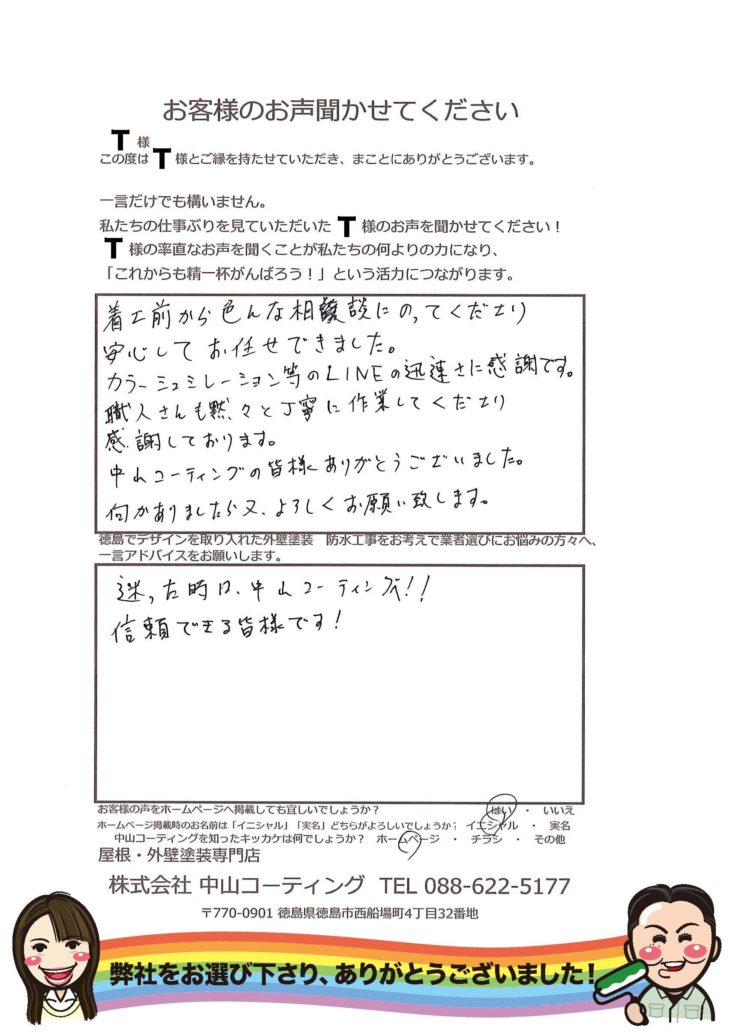 お客様のお声聞かせてください
T 様
この度は T 様とご縁を持たせていただき、まことにありがとうございます。
一言だけでも構いません。
私たちの仕事ぶりを見ていただいた T 様のお声を聞かせてください!
T 様の率直なお声を聞くことが私たちの何よりの力になり、
「これからも精一杯がんばろう!」という活力につながります。
着工前から色んな相談にのってくださり
安心してお任せできました。
カラーシュミレーション等のLINEの迅速さに感謝です。
職人さんも黙々と丁寧に作業してくださり
感謝しております。
中山コーティングの皆様ありがとうございました。
何かありましたら又、よろしくお願い致します。
徳島でデザインを取り入れた外壁塗装 防水工事をお考えで業者選びにお悩みの方々へ、
一言アドバイスをお願いします。
迷った時は、中山コーティングへ!!
信頼できる皆様です!
お客様の声をホームページへ掲載しても宜しいでしょうか? はい ・ いいえ
ホームページ掲載時のお名前は「イニシャル」「実名」どちらがよろしいでしょうか? イニシャル ・ 実名
中山コーティングを知ったキッカケは何でしょうか? ホームページ ・ チラシ ・ その他
屋根・外壁塗装専門店
株式会社 中山コーティング TEL 088-622-5177
〒770-0901 徳島県徳島市西船場町4丁目32番地
弊社をお選び下さり、ありがとうございました!